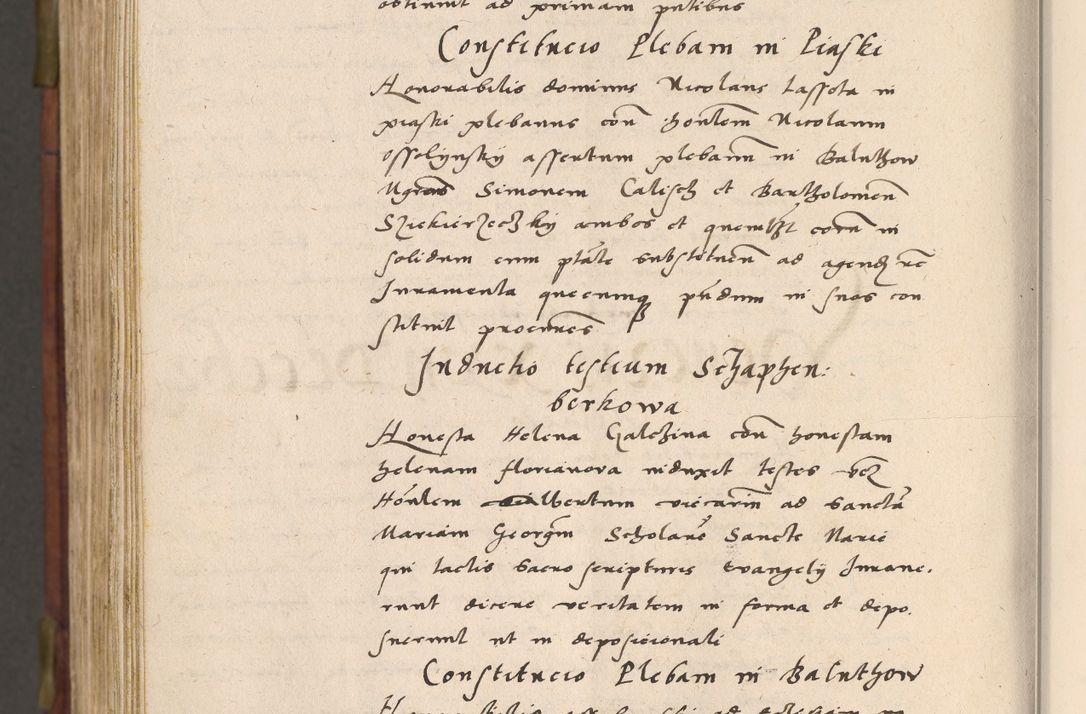 obtinuit ad primam putibus
Constitucio Plebani in Piaski
Honorabilis dominus Nicolaus Lassota in
piaski plebanus con honlem Nicolaum
ossolynsky assertum plebanum in Baluthow
Simonem Calisch et Bartholomeu
Sziekierzeczky ambos et quemlibet coru in
solidum cum ptate substituen ad agend rec
Juramenta quecunq pndum in suos con
stituit procuures
Inductio testium Schaphen:
berkowa
Honesta Helena Galczina con honestam
helenam florianova induxit testes vcz
Honlem Albertum vicarium ad sanctā
Mariam Georgm Scholare Sancte Marie
qui tactis sacro scripturis Evangelij Jurave.
runt dicere veritatem in forma et depo.
suerunt ut in deposicionali
Constitucio Plebani in Baluthow